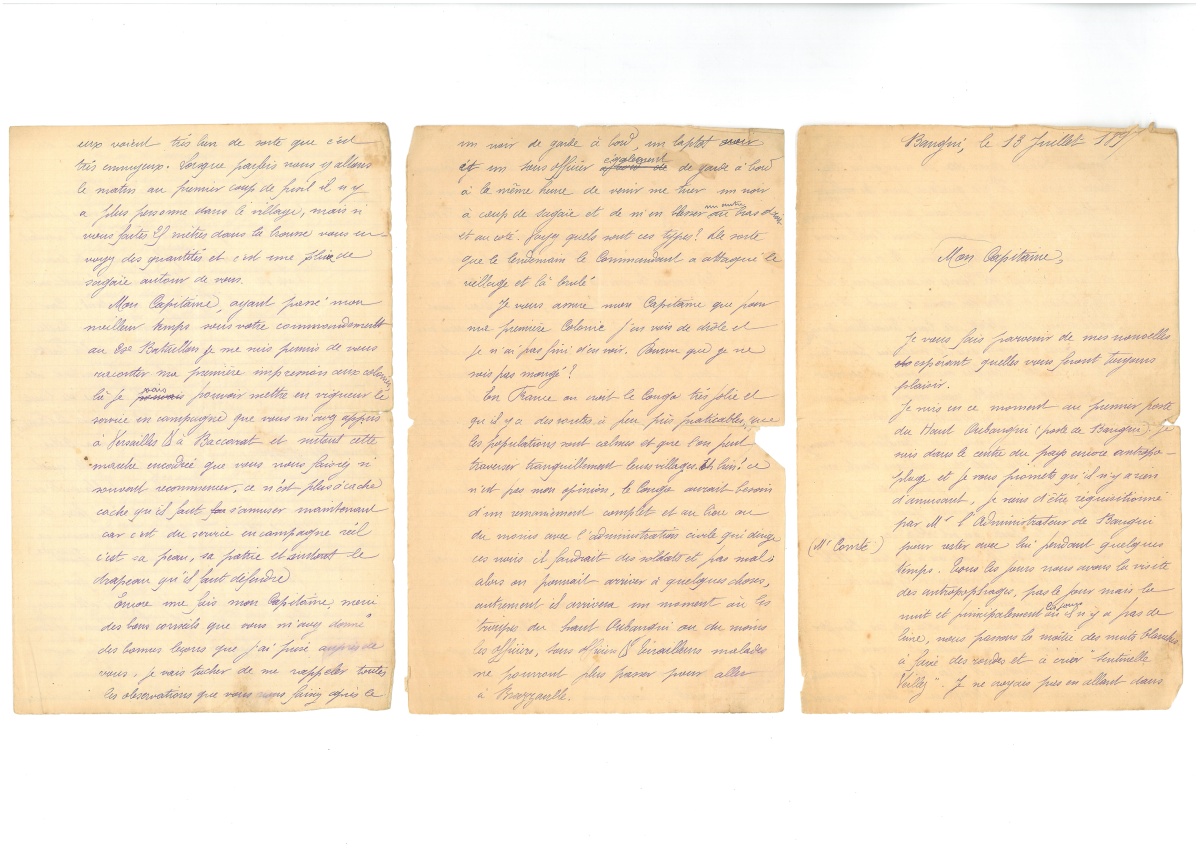 eux voient très bien de sorte que c'est
très ennuyeux. Lorsque parfois nous y allons
le matin au premier coup de fusil il n'y
a plus personne dans le village, mais si
vous faites 25 mètres dans la brousse vous en
voyez des quantités et c'est une pluie de
sagaie autour de vous.
Mon Capitaine, ayant passé mon
meilleur temps sous votre commandement
au 20e Bataillon je me suis permis de vous
raconter ma première impression aux colonies
là je pouvais vais pouvoir mettre en vigueur le
service en campagne que vous m'avez appris
à Versailles & à Baccarat et surtout cette
marche encadrée que vous nous faisiez si
souvent recommencer, ce n'est plus à cache
cache qu'il faut s'amuser maintenant
car c'est du service en campagne réel
c'est sa peau, sa patrie et surtout le
drapeau qu'il faut défendre
Encore une fois mon Capitaine, merci
des bons conseils que vous m'avez donné
des bonnes leçons que j'ai puisé auprès de
vous, je vais tacher de me rappeler toutes
les observations que vous nous faisiez après le
un noir de garde à bord, un laptot noir
et un sous officier également de garde à bord
à la même heure de venir me tuer un noir
à coup de sagaie et de m'en blesser un autre au bras droit
et au coté. Voyez quels sont ces types? De sorte
que le lendemain le Commandant a attaqué le
village et l'à brulé
Je vous assure mon Capitaine que pour
ma première Colonie j'en vois de drôle et
je n'ai pas fini d'en voir. Pourvu que je ne
sois pas mangé?
En France on croit le Congo très jolie et
qu'il y a des routes à peu près praticables, que
les populations sont calmes et que l'on peut
traverser tranquillement leurs villages. Eh bien! ce
n'est pas mon opinion, le Congo aurait besoin
d'un remaniement complet et au lieu ou
du moins avec l'administration civile qui dirige
ces noirs il faudrait des soldats et pas mal
alors on pourrait arriver à quelques choses,
autrement il arrivera un moment où les
troupes du haut Oubangui ou du moins
les officiers, sous officiers & tirailleurs malades
ne pourront plus passer pour aller
à Brazzaville.
Bangui, le 13 Juillet
Mon Capitaine,
Je vous fais parvenir de mes nouvelles
espérant quelles vous feront toujours
plaisir.
Je suis en ce moment au premier poste
du Haut Oubangui (poste de Bangui). Je
suis dans le centre du pays encore antropo-
phage et je vous promets qu'il n'y a rien
d'amusant, je viens d'être réquisitionné
par Mr l'Administrateur de Bangui
(Mr Comte) pour rester avec lui pendant quelques
temps. Tous les jours nous avons la visite
des antropophages, pas le jour mais la
nuit et principalement les jours où il n'y a pas de
lune, nous passons la moitié des nuits blanches
à faire des rondes et à crier "Sentinelle
Veillez". Je ne croyais pas en allant dans